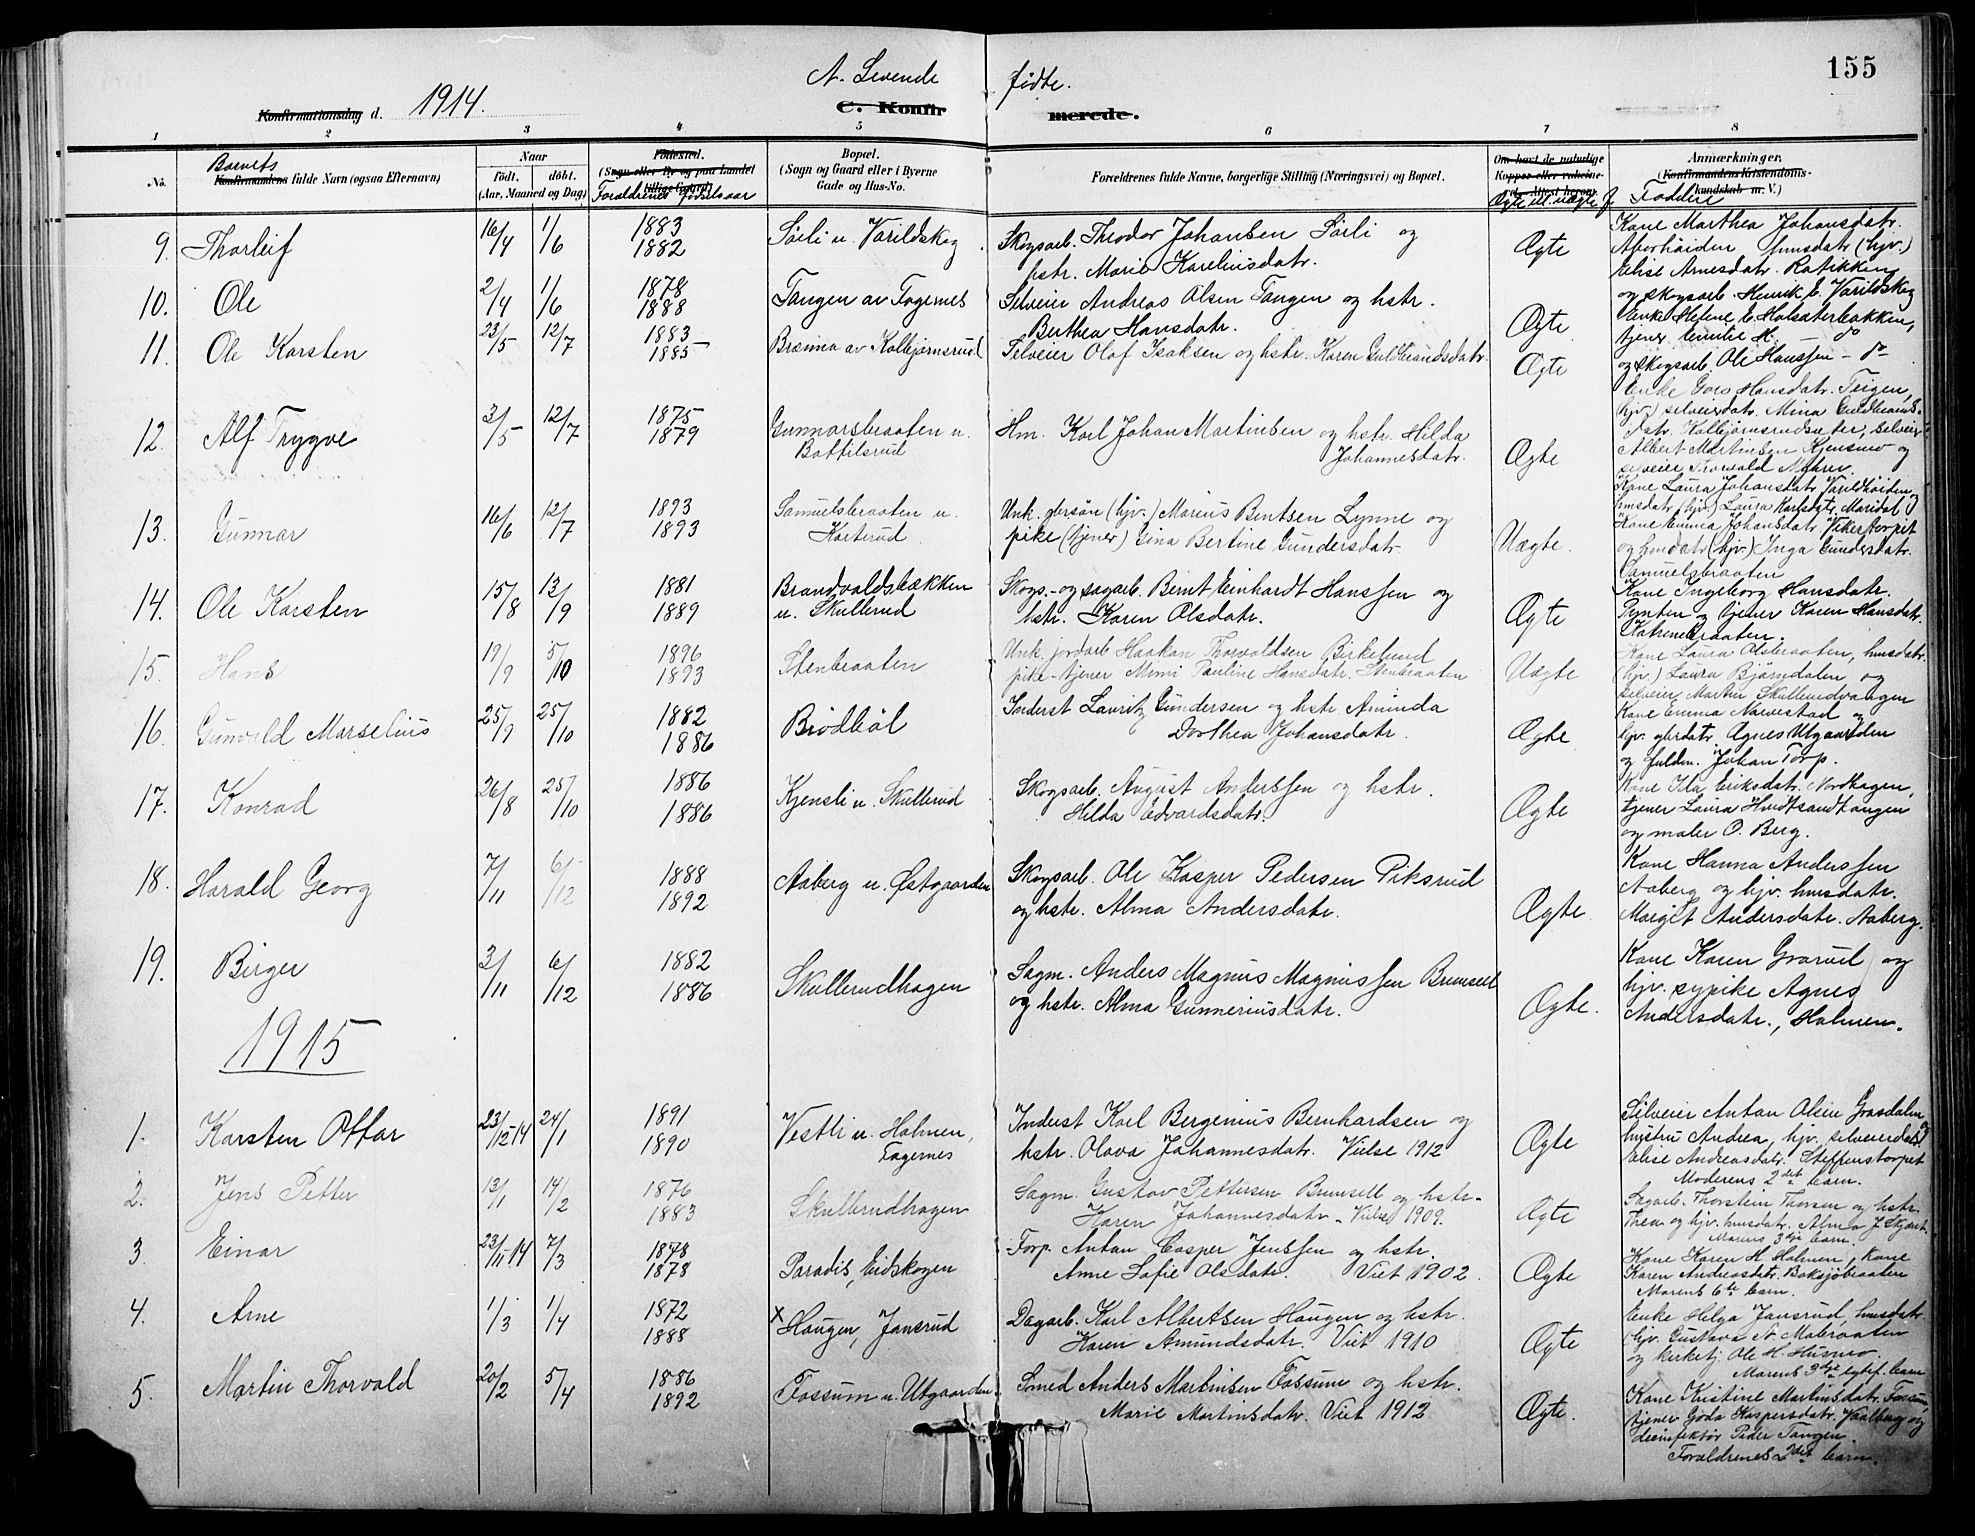 155
A. Levende fødte.
Konfirmationsdag d. 1914.
C. Konfirmerede.
1 2 3 4 5 6 7 8
No.
Barnets
Konfirmandens fulde Navn (ogsaa Efternavn)
Naar
født. døbt.
(Aar, Maaned og Dag)
Fødested.
(Sogn eller By og paa Landet tillige Gaard)
Forældrenes fødselsaar
Bopæl.
(Sogn og Gaard eller i Byerne
Gade og Hus-No.
Forældrenes fulde Navne, borgerlige Stilling (Næringsvei) og Bopæl.
Om havt de naturlige
Kopper eller vaksine-
Ægte ell. uægte f.
Anmærkninger.
(Konfirmandens Kristendoms-
kundskab m. V.)
Faddere
9. Thorleif 16/4 1/6 1883 1882 Sörli u. Varildskog Skogsarb. Theodor Johansen Sörli og
hstr. Marie Kareliusdatr. Ægte
Kone Marthea Johansdatr.
husdatr (hjv.)
Elise Arnesdatr. Ratikken
og skogsarb. Henrik E. Varildskog
10. Ole 2/4 1/6 1878 1888 Tangen av Fagernes Selveier Andreas Olsen Tangen og hstr.
Berthea Hansdatr. Ægte
Enke Helene E. Holsæterbakken,
tjener Emilie H. — do
og skogsarb. Ole Hanssen — do
11. Ole Karsten 23/5 12/7 1883 1885 Brænna av Kolbjörnsrud Selveier Olaf Isaksen og hstr. Karen Guldbrandsdatr. Ægte
Enke Goro Hansdatr. Teigen,
(hjv.) selveierdatr. Mina Guldbrands-
datr. Kolbjörnsrudsæter, selveier
Albert Martinsen Kjensmo og
selveier Thorvald Mohrer.
12. Alf Trygve 3/5 12/7 1875 1879 Gunnarsbraaten u.
Bottilsrud Hm. Karl Johan Martinsen og hstr. Hilda
Johannesdatr. Ægte
Kone Laura Johansdatr Varildhöiden og
husdatr (hjv.) Laura Karlsdatr, Maridal
13. Gunnar 16/6 12/7 1893 1893 Samuelsbraaten u.
Karterud Unk. gbrsön (hjv.) Marius Bentsen Lynne og
pike (tjener) Gina Bertine Gundersdatr. Uægte.
Kone Emma Johansdatr Vikertorpet
og husdatr (hjv.) Inga Gundersdatr.
Samuelsbraaten
14. Ole Karsten 15/8 13/9 1881 1889 Brandvoldsbækken
u. Skullerud Skogs- og sagarb. Bernt Einhardt Hanssen og
hstr. Karen Olsdatr. Ægte
Kone Ingeborg Hansdatr.
Pynten og tjener Karen Hansdatr.
Katrinebraaten.
15. Hans 19/9 5/10 1896 1893 Stenbraaten Unk. jordarb. Haakan Thorvaldsen Birkelund
pike-tjener Mimi Pauline Hansdatr. Stenbraaten Uægte
Kone Laura Olsbraaten, husdatr.
(hjv.) Laura Bjørndalen og
selveier Martin Skullerudvangen
16. Gunvald Marselius 25/9 25/10 1882 1886 Brödböl Inderst Lauritz Gundersen og hstr. Aminda
Dorthea Johansdatr. Ægte
Kone Emma Navestad og
hjv. gbrdatr. Agnes Utgaarden
og fuldm. Johan Torp.
17. Konrad 26/8 25/10 1886 1886 Kjensli u. Skullerud Skogsarb. August Anderssen og hstr.
Hilda Edvardsdatr. Ægte
Kone Ida Eriksdatr. Nordhagen,
tjener Laura Hvidtsandtangen
og maler O. Berg.
18. Harald Georg 7/11 6/12 1888 1892 Aaberg u. Østgaarden Skogsarb. Ole Kasper Pedersen Piksrud
og hstr. Alma Andersdatr. Ægte
Kone Hanna Anderssen
Aaberg og hjv. husdatr.
Margit Andersdatr. Aaberg.
19. Birger 3/11 6/12 1882 1886 Skullerudhagen Sagm. Anders Magnus Magnussen Brunsell
og hstr. Alma Gunneriusdatr. Ægte.
Kone Karen Grorud og
hjv. sypike Agnes
Andersdatr., Holmen.
1915
1. Karsten Ottar 23/12-14 24/1 1891 1890 Vestli u. Holmen,
Fagernes Inderst Karl Bergenius Bernhardsen og
hstr. Olava Johannesdatr. Vielse 1912 Ægte
Selveier Anton Olsen Grasdalen og
hustru Andrea, hjv. selveierdatr.
Elise Andreasdatr. Steffenstorpet
Moderens 2det barn.
2. Jens Petter 13/1 14/2 1876 1883 Skullerudhagen Sagm. Gustav Pettersen Brunsell og hstr.
Karen Johannesdatr. Vielse 1909. Ægte
Sagarb. Thorstein Thorsen og hstr.
Thea og hjv. husdatr. Alma J. Skjæret
Morens 3dje barn.
3. Einar 23/11-14 7/3 1878 1878 Paradis, Eidskogen Forp. Anton Casper Jenssen og hstr.
Anne Sofie Olsdatr. Viet 1902. Ægte
Kone Karen H. Holmen, kone
Karen Andreasdatr. Baksjöbraaten
Morens 6te barn.
4. Arne 1/3 1/4 1872 1888 X Haugen, Jansrud Dagarb. Karl Albertsen Haugen og hstr.
Karen Amundsdatr. Viet 1910 Ægte
Enke Helga Jansrud, husdatr.
(hjv. Gustava N. Mobraaten
og kirketj. Ole H. Husmo.
Morens 3dje egtef. barn
5. Martin Thorvald 20/2 5/4 1886 1892 Fossum u. Utgaarden Smed Anders Martinsen Fossum og hstr.
Marie Martinsdatr. Viet 1912 Ægte.
Kone Kristine Martinsdatr. Fossum,
tjener Goda Kaspersdatr. Vaalberg og
desinfektör Peder Tangen.
Forældrenes 2det barn.